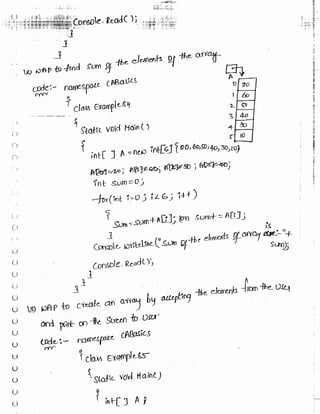 Console.ReadC );
}
}
}
14) WAP to find sum of the elements of the array
code:- namespace CABasics
{
class Example84
{
Static void Main( )
{
int[ ] A = new int[6]{80,60,50,40,30,10}
int sum=0;
for(int i=0; i<6; i++)
{
Sum=Sum+A[i]; (or) sum+=A[i];
}
Console.writeline("sum of the elements of array is:"+
sum);
Console.Read();
}
}
}
A
0 80
1 60
2 50
3 40
4 30
5 10
15) WAP to create an array by accepting the elements from the user
and print on the Screen to user
Code:- namespace CABasics
{
class Example85
{
Static void Main( )
{
int[ ] A ;